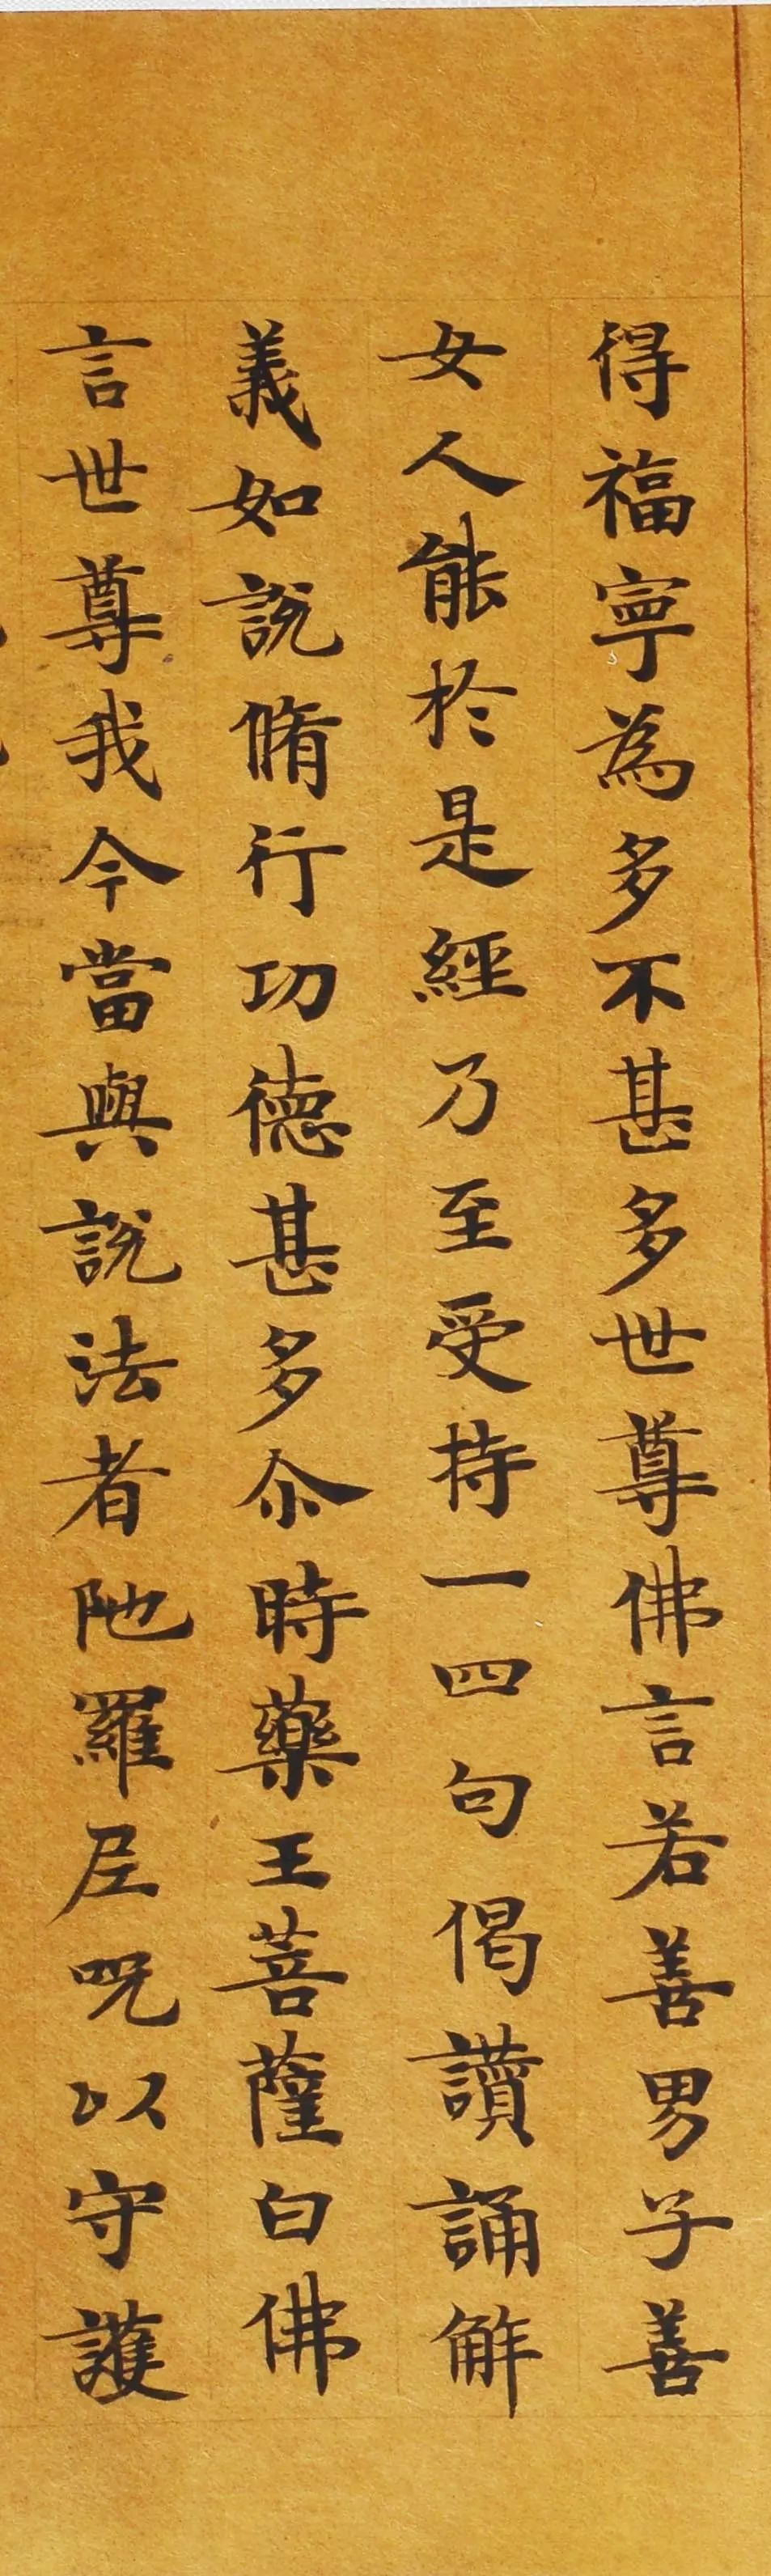 得福寧為多不甚多世尊佛言若善男子善
女人能於是經乃至受持一四句偈讀誦解
義如說脩行功德甚多尒時藥王菩薩白佛
言世尊我今當與說法者陁羅尼呪以守護